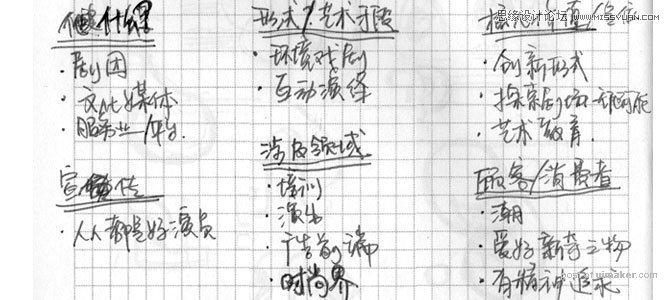 思缘设计论坛 WWW.MISSYUAN.COM
做什么
· 剧团
· 文化媒体
· 服务业平台
宣传
· 人人都是好演员
形式/艺术手段
· 环境戏剧
· 互动演绎
涉及领域
· 培训
· 演出
· 广告前端
· 时尚界
核心价值/定位
· 创新形式
· 探索剧场
· 艺术教育
顾客/消费者
· 潮
· 爱好新奇之物
· 有精神追求
post of uimaker.com